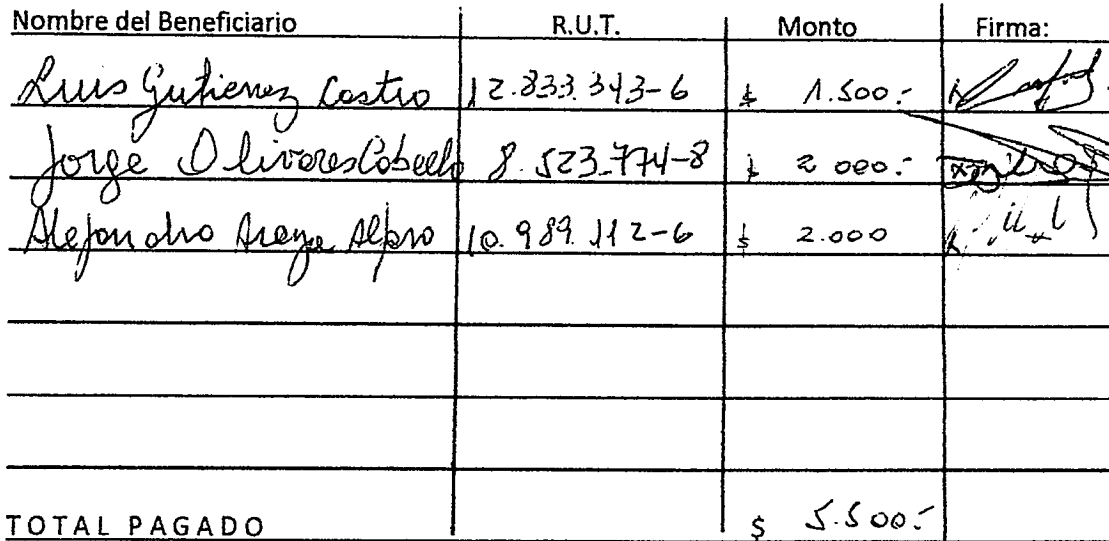 Nombre del Beneficiario R.U.T. Monto Firma:
Luis Gutierrez Castro 12.833.343-6 $ 1.500.-
Jorge Olivares 8.523.774-8 $ 2000.-
Alejandro Araya 10.989.112-6 $ 2.000
TOTAL PAGADO $ 5.500.-